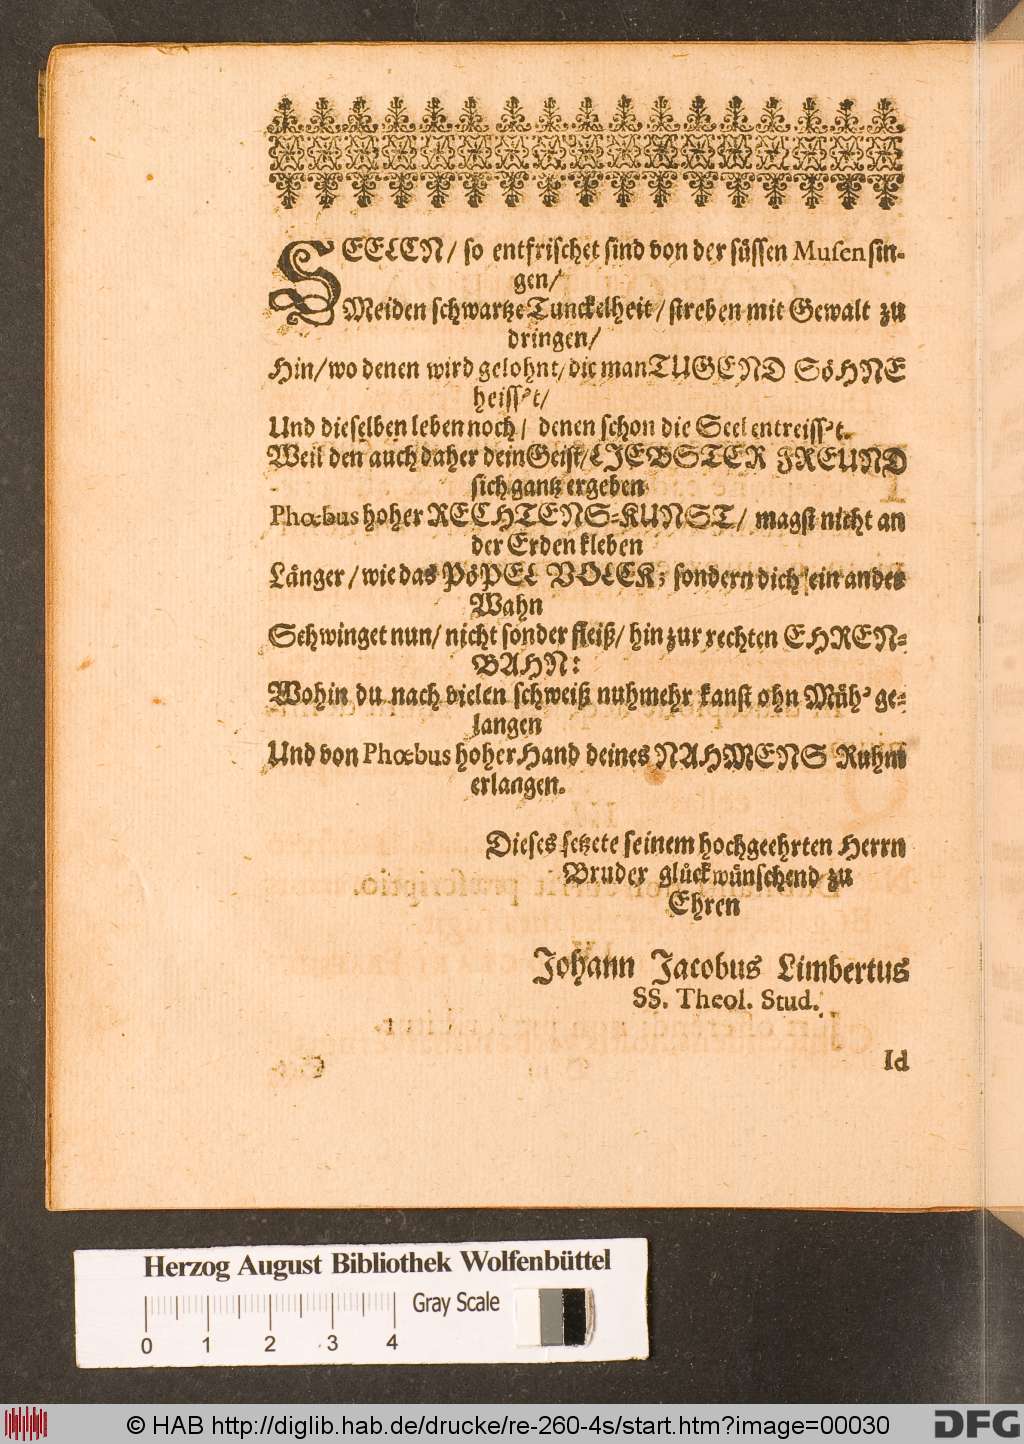 SEELEN/ so entfrischet sind von der süssen Musen sin-
gen/
Meiden schwartze Tunckelheit/ streben mit Gewalt zu
dringen/
Hin/ wo denen wird gelohnt/ die man TUGEND SöHNE
heiss't/
Und dieselben leben noch/ denen schon die Seel entreiss't.
Weil den auch daher dein Geist/ LIEBSTER FREUND
sich gantz ergeben
Phœbus hoher RECHTENS-KUNST/ magst nicht an
der Erden kleben
Länger/ wie das PöPEL VOLCK; sondern dich ein andes
Wahn
Sehwinget nun/ nicht sonder fleiß/ hin zur rechten EHREN-
BAHN:
Wohin du nach vielen schweiß nuhmehr kanst ohn Müh' ge-
langen
Und von Phœbus hoher Hand deines NAHMENS Ruhm
erlangen.
Dieses setzete seinem hochgeehrten Herrn
Bruder glückwünschend zu
Ehren
Johann Jacobus Limbertus
SS. Theol. Stud.
Id
Herzog August Bibliothek Wolfenbüttel
Gray Scale
0 1 2 3 4
© HAB http://diglib.hab.de/drucke/re-260-4s/start.htm?image=00030
DFG